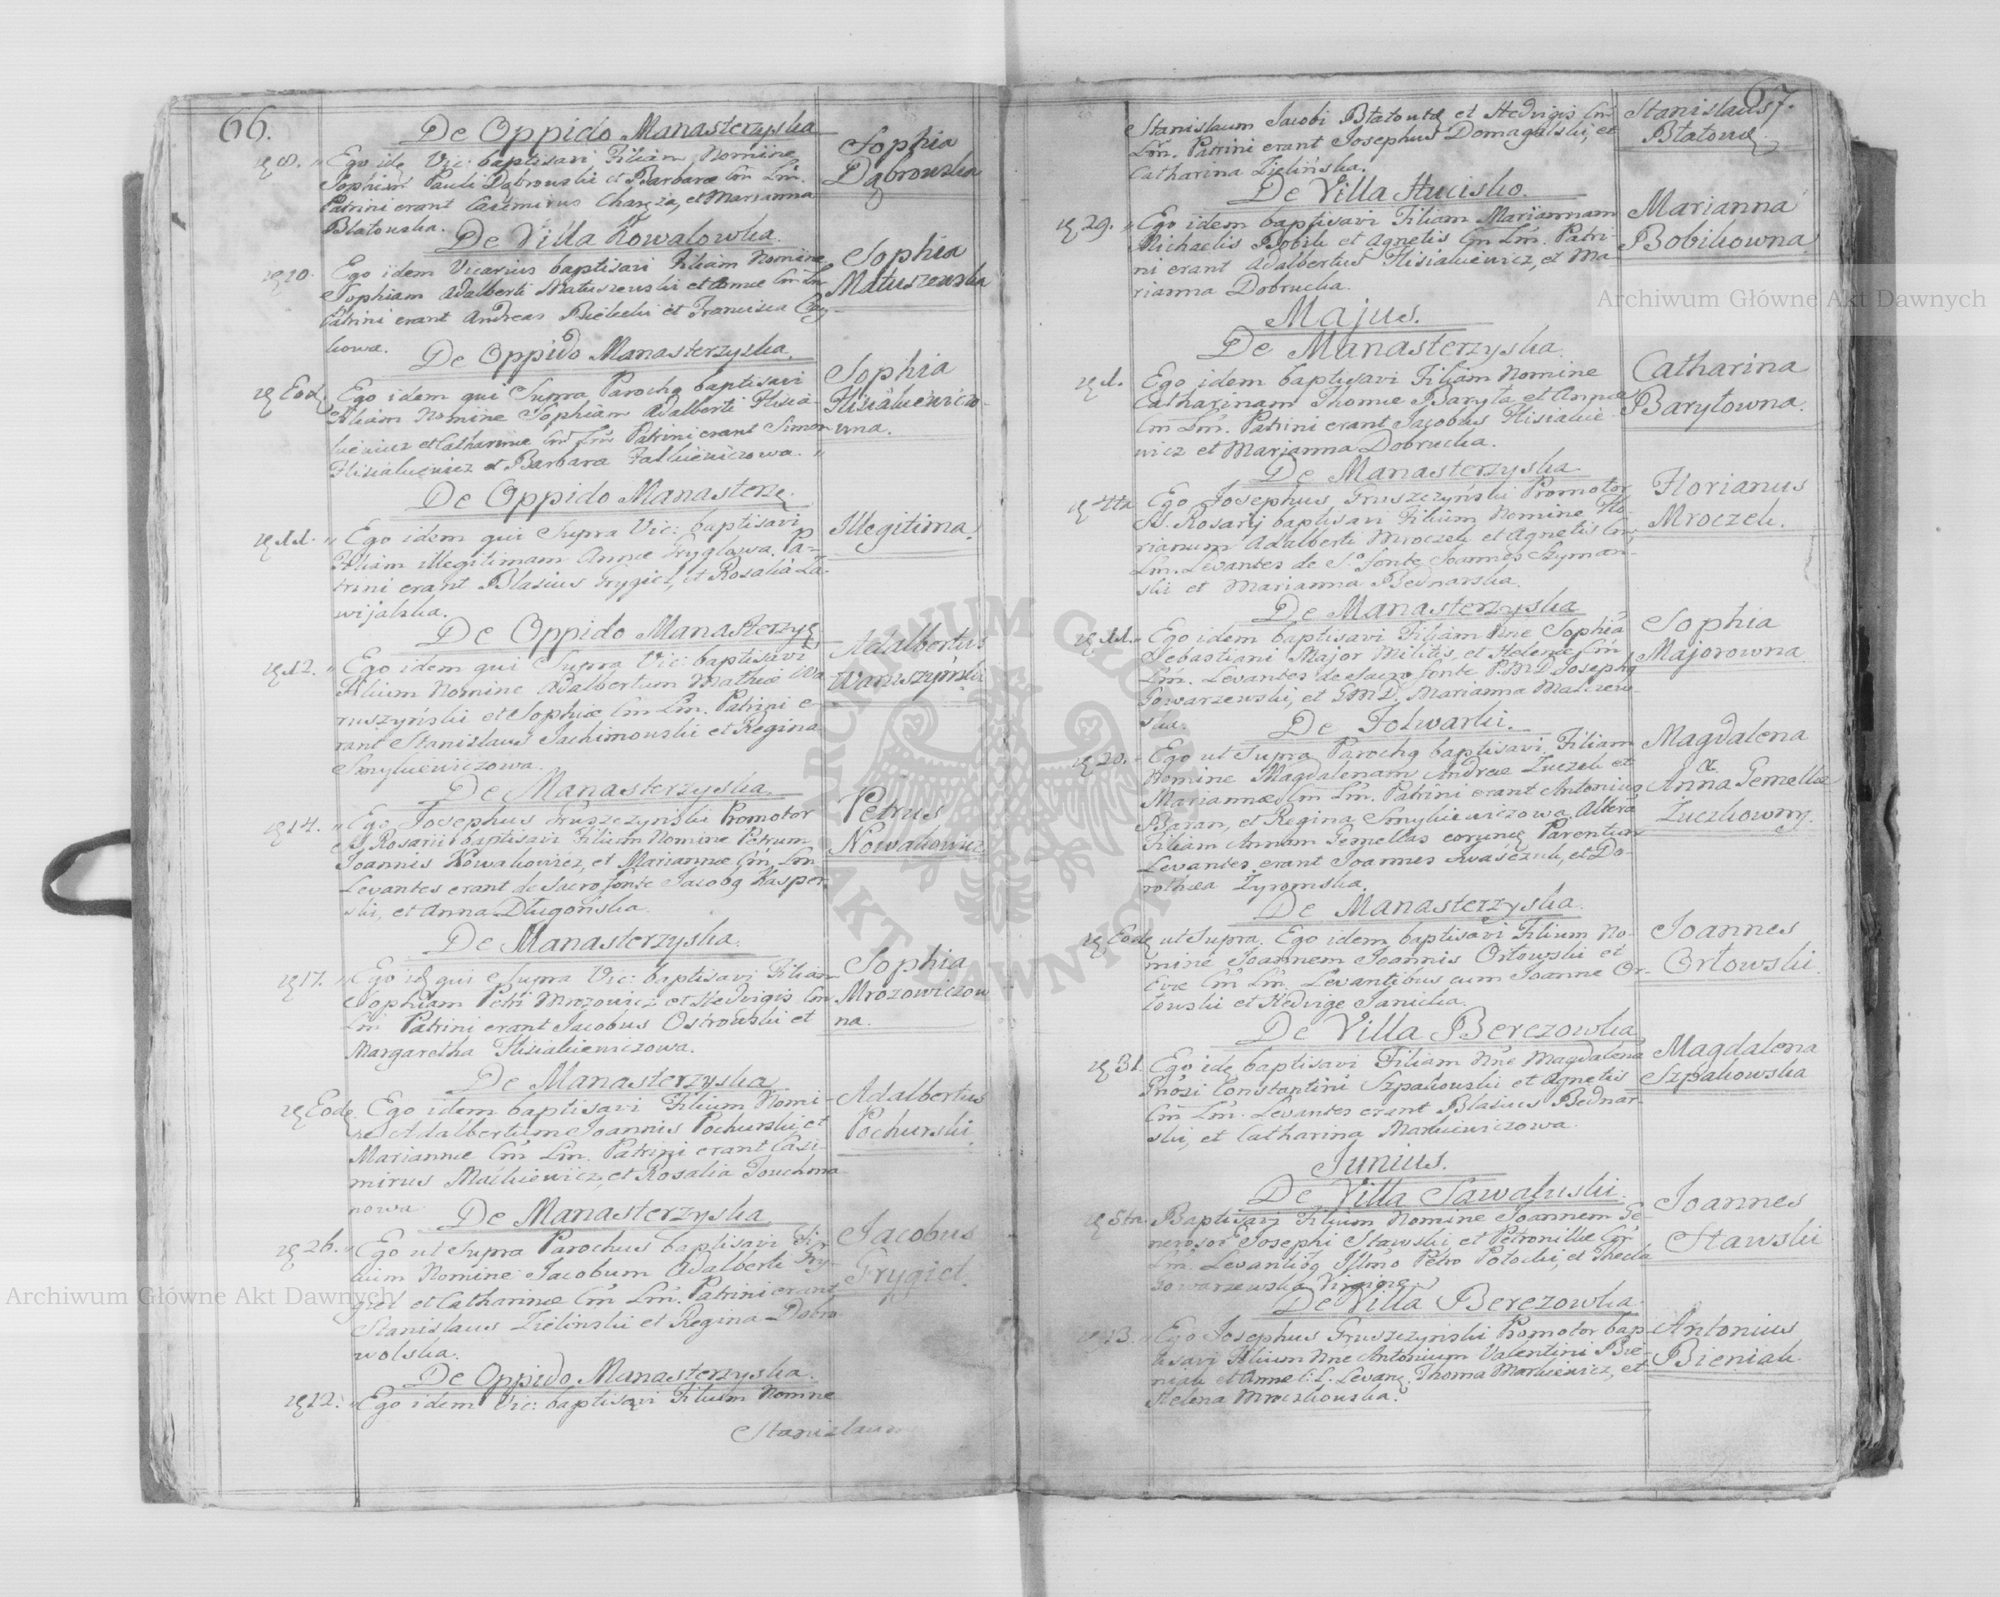 66.
De Oppido Manasterzyska
8. Ego idę Vic: baptisavi Filiam Nomine
Sophiam Pauli Dąbrowski et Barbaræ Cm Lm.
Patrini erant Casimirus Charęza, et Marianna
Blatouska.
Sophia
Dąbrowska
De Villa Kowalowka.
10. Ego idem Vicarius baptisavi Filiam Nomine
Sophiam Adalberti Matuszewski et Annæ Cm Lm
Patrini erant Andreas Bielecki et Francisca
kowa.
Sophia
Matuszewska
De Oppido Manasterzyska.
Eodę Ego idem qui Supra Parochq baptisavi
Filiam Nomine Sophiam Adalberti Hisia-
kiewicz et Catharinæ Cm Lm Patrini erant Simon
Hisiakiewicz et Barbara Falkiewiczowa.
Sophia
Hisiakiewiczo-
wna.
De Oppido Manasterzę.
11. Ego idem qui Supra Vic: baptisavi
Filiam illegitimam Annæ Fryglowa. Pa-
trini erant Blasius Frygiel, et Rosalia Za-
wijalska.
Illegitima.
De Oppido Manasterzyę
12. Ego idem qui Supra Vic: baptisavi
Filium Nomine Adalbertum Mathiæ Wa-
ruszyński et Sophiæ Cm Lm. Patrini e-
rant Stanislaus Jachimowski et Regina
Smykiewiczowa.
Adalbertus
Waruszyński
De Manasterzyska.
14. Ego Josephus Gruszczynski Promotor
S. Rosarii baptisavi Filium Nomine Petrum
Joannis Nowakowicz, et Mariannæ Cm, Lm
Levantes erant de Sacro fonte Jacobq Kasper-
ski, et Anna Długońska.
Petrus
Nowakowicz
De Manasterzyska.
17. Ego idę qui Supra Vic: baptisavi Filiam
Sophiam Petri Mrozowicz et Hedvigis Cm
Lm Patrini erant Jacobus Ostrowski et
Margaretha Hisiakiewiczowa.
Sophia
Mrozowiczow
na.
De Manasterzyska
Eodę Ego idem baptisavi Filium Nomi-
ne Adalbertum Joannis Pochurski et
Mariannæ Cm Lm. Patrini erant Casi-
mirus Malkiewicz, et Rosalia Jouchma
nowa
Adalbertus
Pochurski
De Manasterzyska
26. Ego ut Supra Parochus baptisavi Fi-
lium Nomine Jacobum Adalberti Fry-
giel et Catharinæ Cm Lm. Patrini erant
Stanislaus Zielinski et Regina Dobro
wolska.
Jacobus
Frygiel.
De Oppido Manasterzyska.
12. Ego idem Vic: baptisavi Filium Nomine
Stanislaum
67.
Stanislaum Jacobi Błatoutę et Hedvigis Cm
Lm. Patrini erant Josephus Domagalski, et
Catharina Zielińska.
Stanislaus
Błatoutę
De Villa Hucisko.
29. Ego idem baptisavi Filiam Mariannam
Michaelis Bobik et Agnetis Cm Lm. Patri
ni erant Adalbertus Hisiakiewicz, et Ma
rianna Dobrucka.
Marianna
Bobikowna
Majus.
De Manasterzyska
1. Ego idem baptisavi Filiam Nomine
Catharinam Thomæ Baryła et Annæ
Cm Lm. Patrini erant Jacobus Hisiakie
wicz et Marianna Dobrucka.
Catharina
Baryłowna.
De Manasterzyska
4ta Ego Josephus Gruszczyński Promotor
S. Rosarij baptisavi Filium Nomine Flo-
rianum Adalberti Mroczek et Agnetis Cm
Lm. Levantes de S. fonte Joannes Szyman-
ski et Marianna Bednarska.
Florianus
Mroczek.
De Manasterzyska
11. Ego idem baptisavi Filiam Nne Sophia
Sebastiani Major Militis, et Helenæ Cm
Lm. Levantes de Sacro fonte P.M.D. Josephq
Gowarzewski, et G.M.D. Marianna Malczew-
ska.
Sophia
Majorowna
De Folwarki.
20. Ego ut Supra Parochq baptisavi Filiam
Nomine Magdalenam Andreæ Zuczek et
Mariannæ Cm Lm. Patrini erant Antonius
Baran, et Regina Smykiewiczowa Altera
Filiam Annam Gemellas eorunę Parentum
Levantes erant Joannes Iwaszczuk, et Do-
rothea Zyromska.
Magdalena
et
Anna Gemellæ
Zuczkowny.
De Manasterzyska.
Eodę ut Supra. Ego idem baptisavi Filium No-
mine Joannem Joannis Orłowski et
Evæ Cm Lm. Levantibus eum Joanne Or-
łowski et Hedvige Janicka.
Joannes
Orłowski.
De Villa Berezowka
31. Ego idę baptisavi Filiam Nne Magdalena
Gnosi Constantini Szpakowski et Agnetis
Cm Lm. Levantes erant Blasius Bednar-
ski, et Catharina Markiewiczowa.
Magdalena
Szpakowska
Junius.
De Villa Sawałuski.
5ta Baptisavi Filium Nomine Joannem Ge-
nerosor Josephi Stawski et Petronillæ Cm
Lm. Levantibq Illmo Petro Potocki, et Thecla
Gowarzewska Virgine.
Joannes
Stawski
De Villa Berezowka.
13. Ego Josephus Gruszczynski Promotor bap-
tisavi Filium Nne Antonium Valentini Bie-
niak et Annæ C: L. Levanę. Thoma Markiewicz, et
Helena Mroczkowska.
Antonius
Bieniak.
Archiwum Główne Akt Dawnych
Archiwum Główne Akt Dawnych
ARCHIWUM GŁÓWNE AKT DAWNYCH